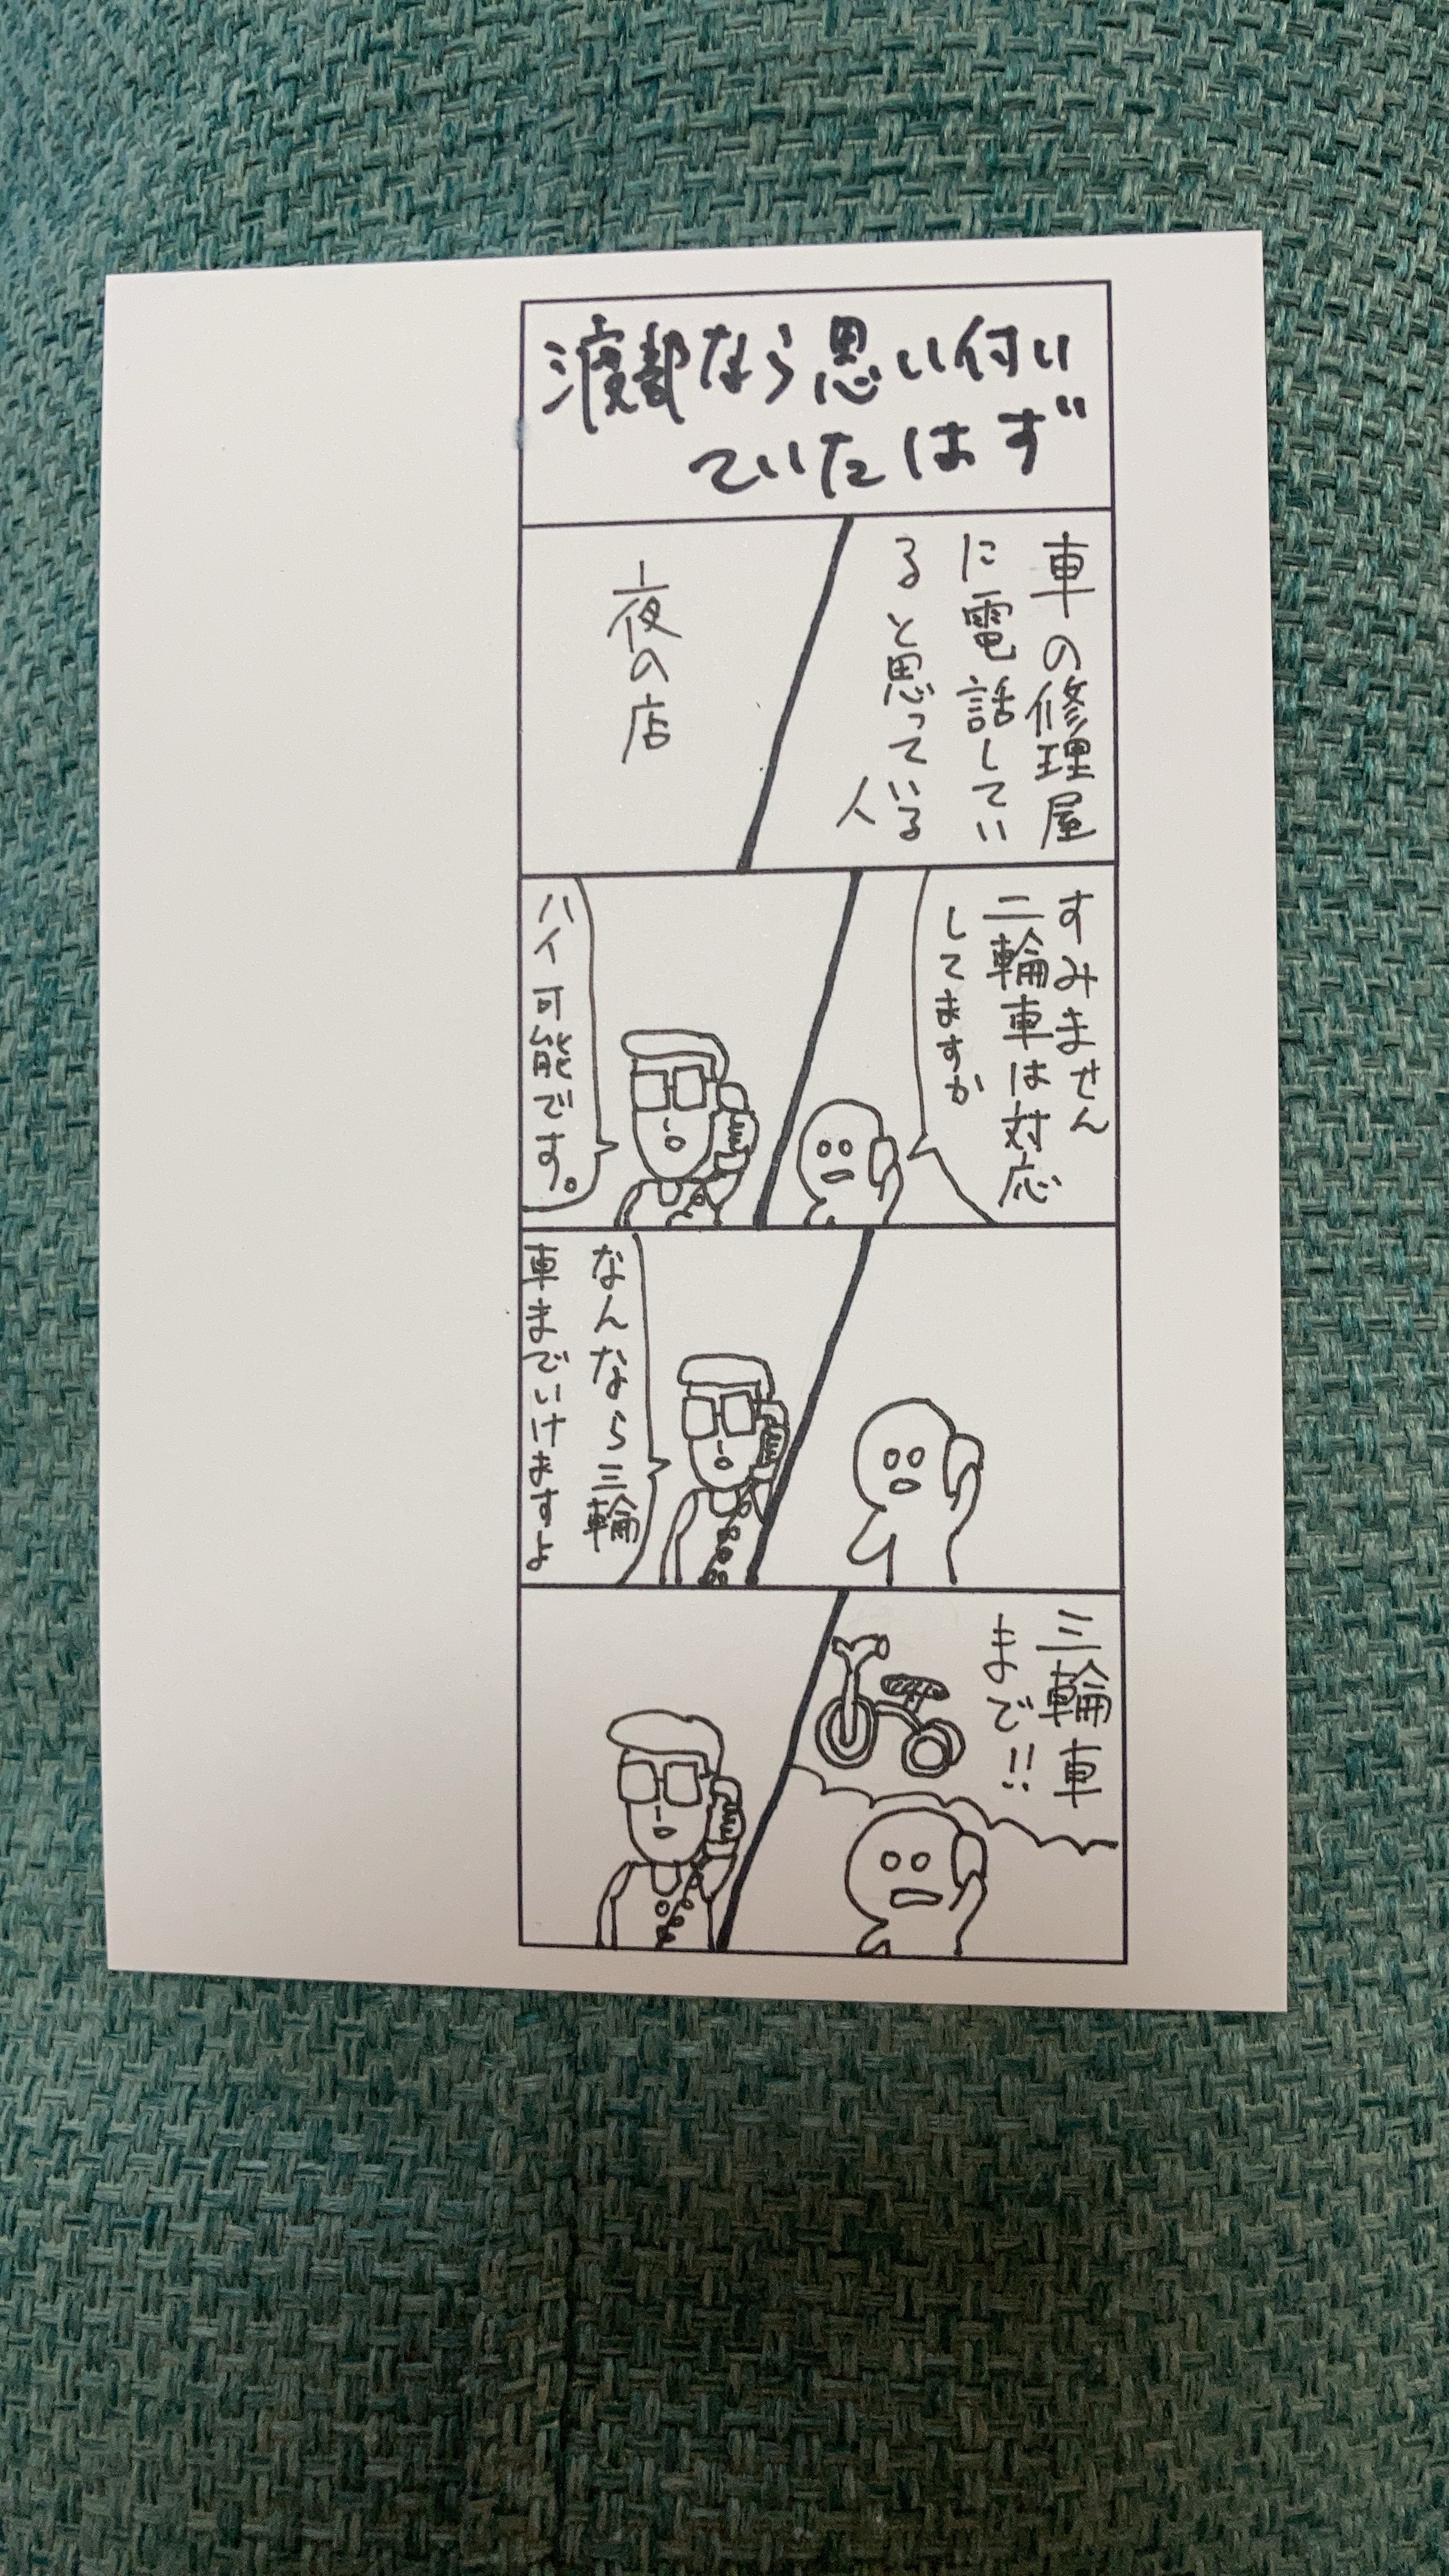 渡部なら思い付い
ていたはず
車の修理屋
に電話してい
ると思っている
人
夜の店
すみません
二輪車は対応
してますか
ハイ可能です。
なんなら三輪
車までいけますよ
三輪車
まで!!